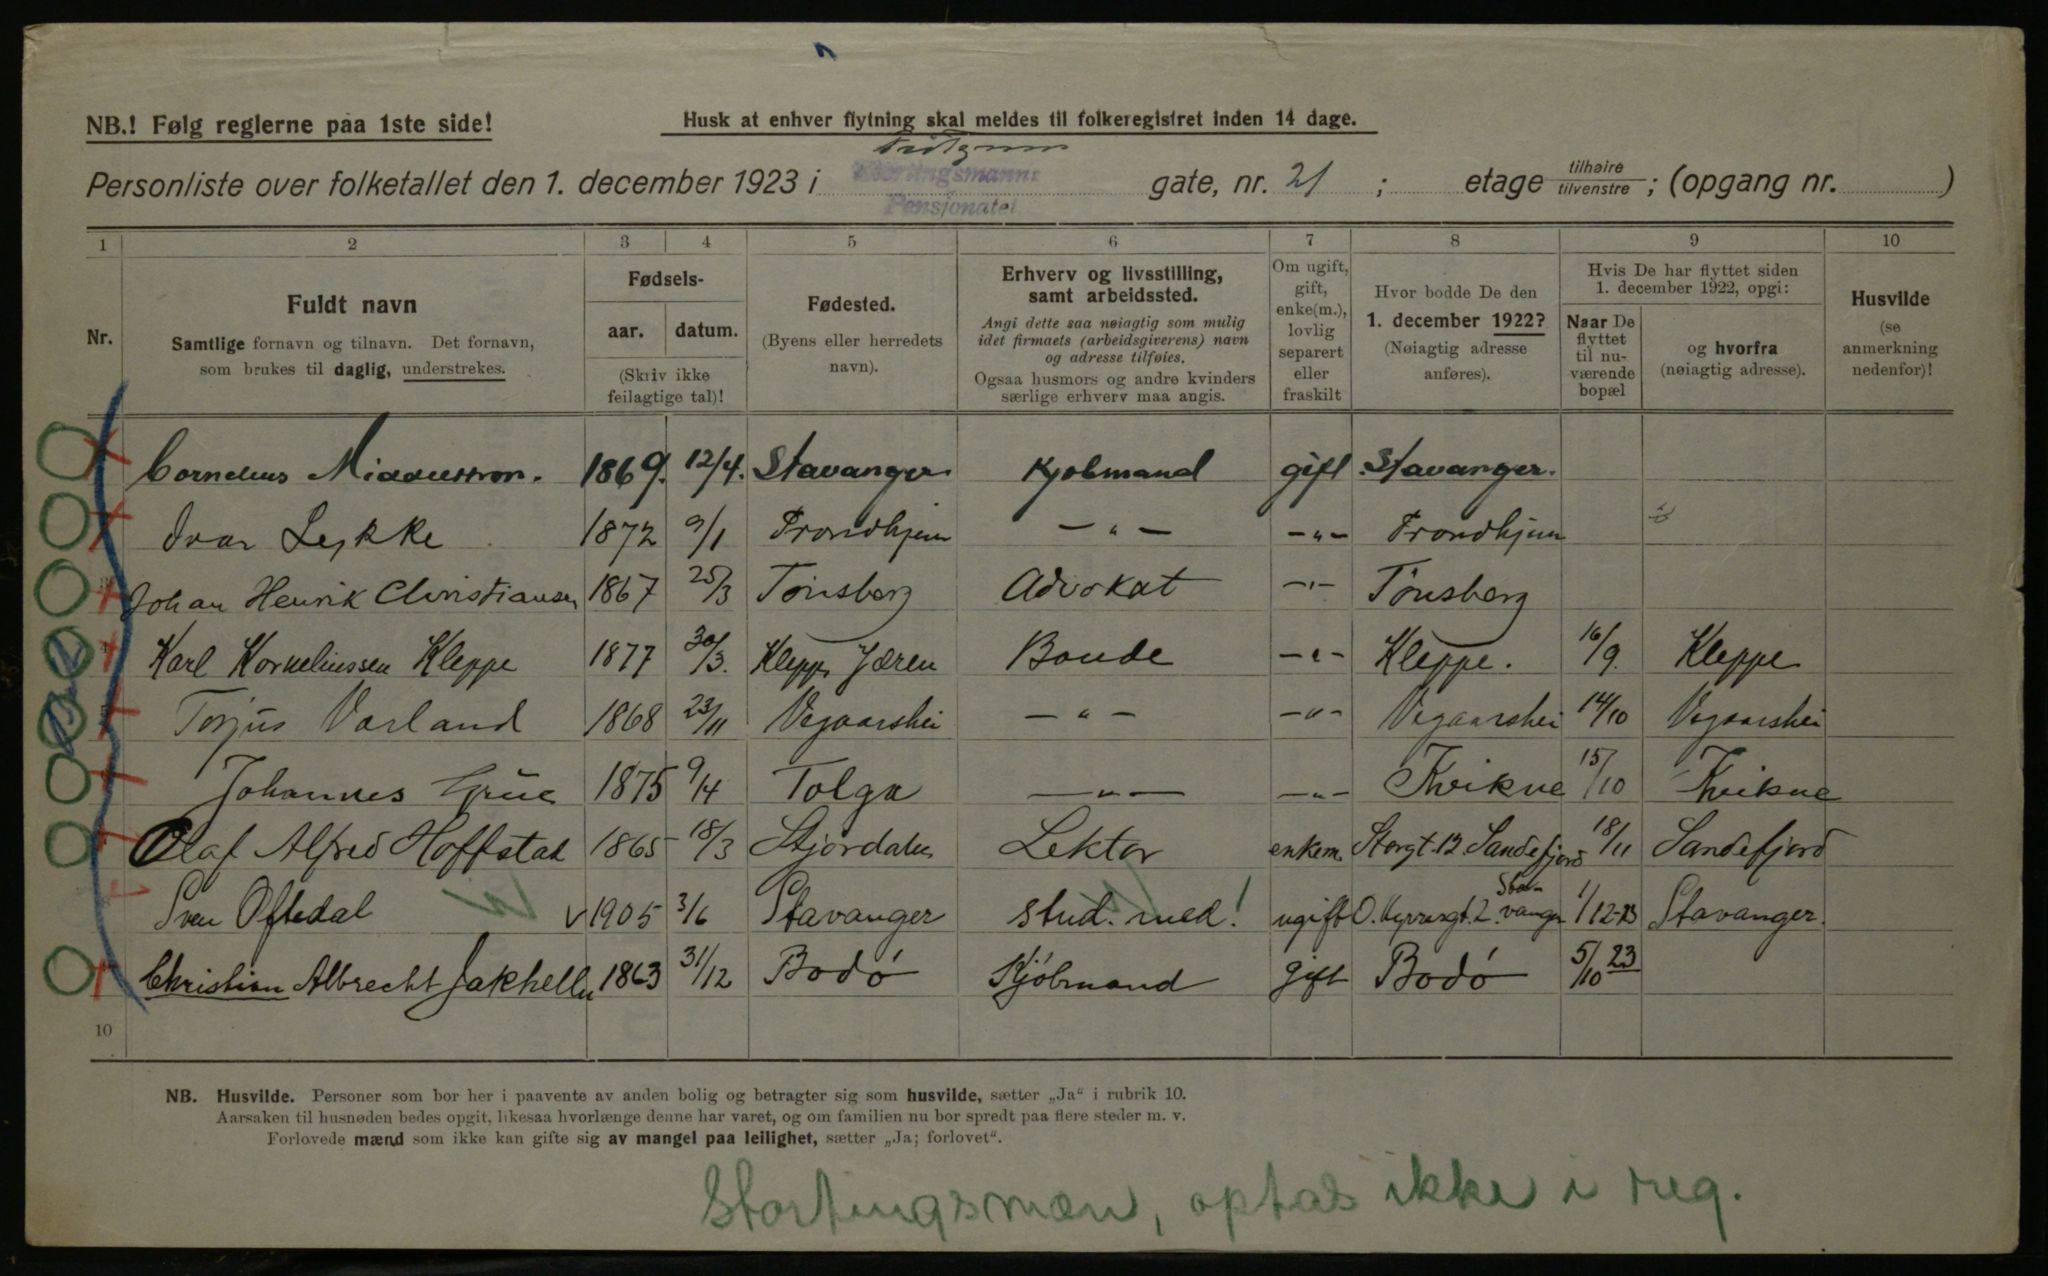 NB.! Følg reglerne paa 1ste side!
Husk at enhver flytning skal meldes til folkeregistret inden 14 dage.
Personliste over folketallet den 1. december 1923 i Stortingsmanns Pensjonatet gate, nr. 21 ; etage tilhøire/tilvenstre ; (opgang nr. )
1 2 3 4 5 6 7 8 9 10
Nr.
Fuldt navn
Samtlige fornavn og tilnavn. Det fornavn,
som brukes til daglig, understrekes.
Fødsels-
aar. datum.
(Skriv ikke
feilagtige tal)!
Fødested.
(Byens eller herredets
navn).
Erhverv og livsstilling,
samt arbeidssted.
Angi dette saa nøiagtig som mulig
idet firmaets (arbeidsgiverens) navn
og adresse tilføies.
Ogsaa husmors og andre kvinders
særlige erhverv maa angis.
Om ugift,
gift,
enke(m.),
lovlig
separert
eller
fraskilt
Hvor bodde De den
1. december 1922?
(Nøiagtig adresse
anføres).
Hvis De har flyttet siden
1. december 1922, opgi:
Naar De
flyttet
til nu-
værende
bopæl
og hvorfra
(nøiagtig adresse).
Husvilde
(se
anmerkning
nedenfor)!
Cornelius 1869. 12/4. Stavanger Kjøbmand gift Stavanger.
Ivar Lykke 1872 9/1 Trondhjem — " — — " — Trondhjem
Johan Henrik Christiansen 1867 25/3 Tønsberg Advokat — " — Tønsberg
4 Karl Korneliussen Kleppe 1877 30/3. Klepp, Jæren Bonde — " — Kleppe. 16/9. Kleppe
Torjus Varland 1868 23/11 Vegaarshei — " — — " — Vegaarshei 14/10 Vegaarshei
Johannes Grue 1875 9/4 Tolga — " — — " — Kvikne 15/10 Kvikne
Olaf Alfred Hoffstad 1865 18/3 Stjørdalen Lektor enkem. Storgt. 12. Sandefjord 18/11 Sandefjord
Sven Oftedal v 1905 3/6 Stavanger stud. med! ugift Stavanger 1/12-23 Stavanger.
Christian Albrecht Jakhelln 1863 31/12 Bodö Kjöbmand gift Bodö 5/10 23
10
NB. Husvilde. Personer som bor her i paavente av anden bolig og betragter sig som husvilde, sætter „Ja“ i rubrik 10.
Aarsaken til husnøden bedes opgit, likesaa hvorlænge denne har varet, og om familien nu bor spredt paa flere steder m. v.
Forlovede mænd som ikke kan gifte sig av mangel paa leilighet, sætter „Ja; forlovet“.
Stortingsmæn, optas ikke i reg.